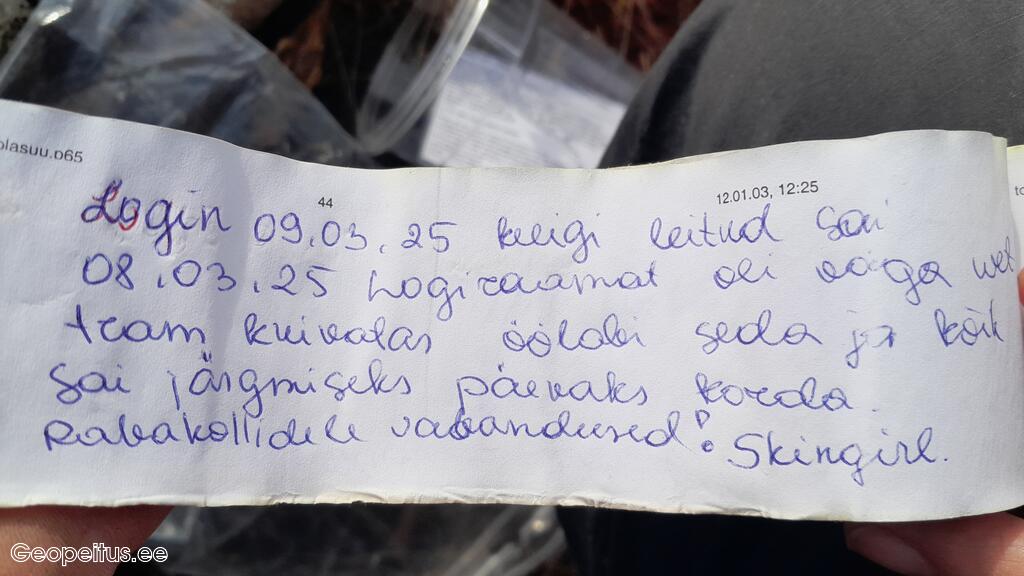 olasuu.p65
44
12.01.03, 12:25
Login 09.03.25 kuigi leitud sai
08.03.25 Logiraamat oli väga wet
team kuivatas ööläbi seda ja kõik
sai järgmiseks päevaks korda.
Rabakollidele vabandused! Skingirl.
Geopeitus.ee